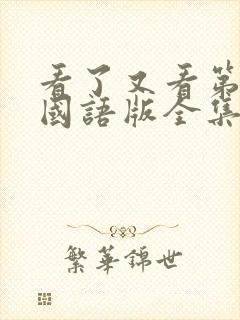 看了又看第
國語版全集
繁華錦世